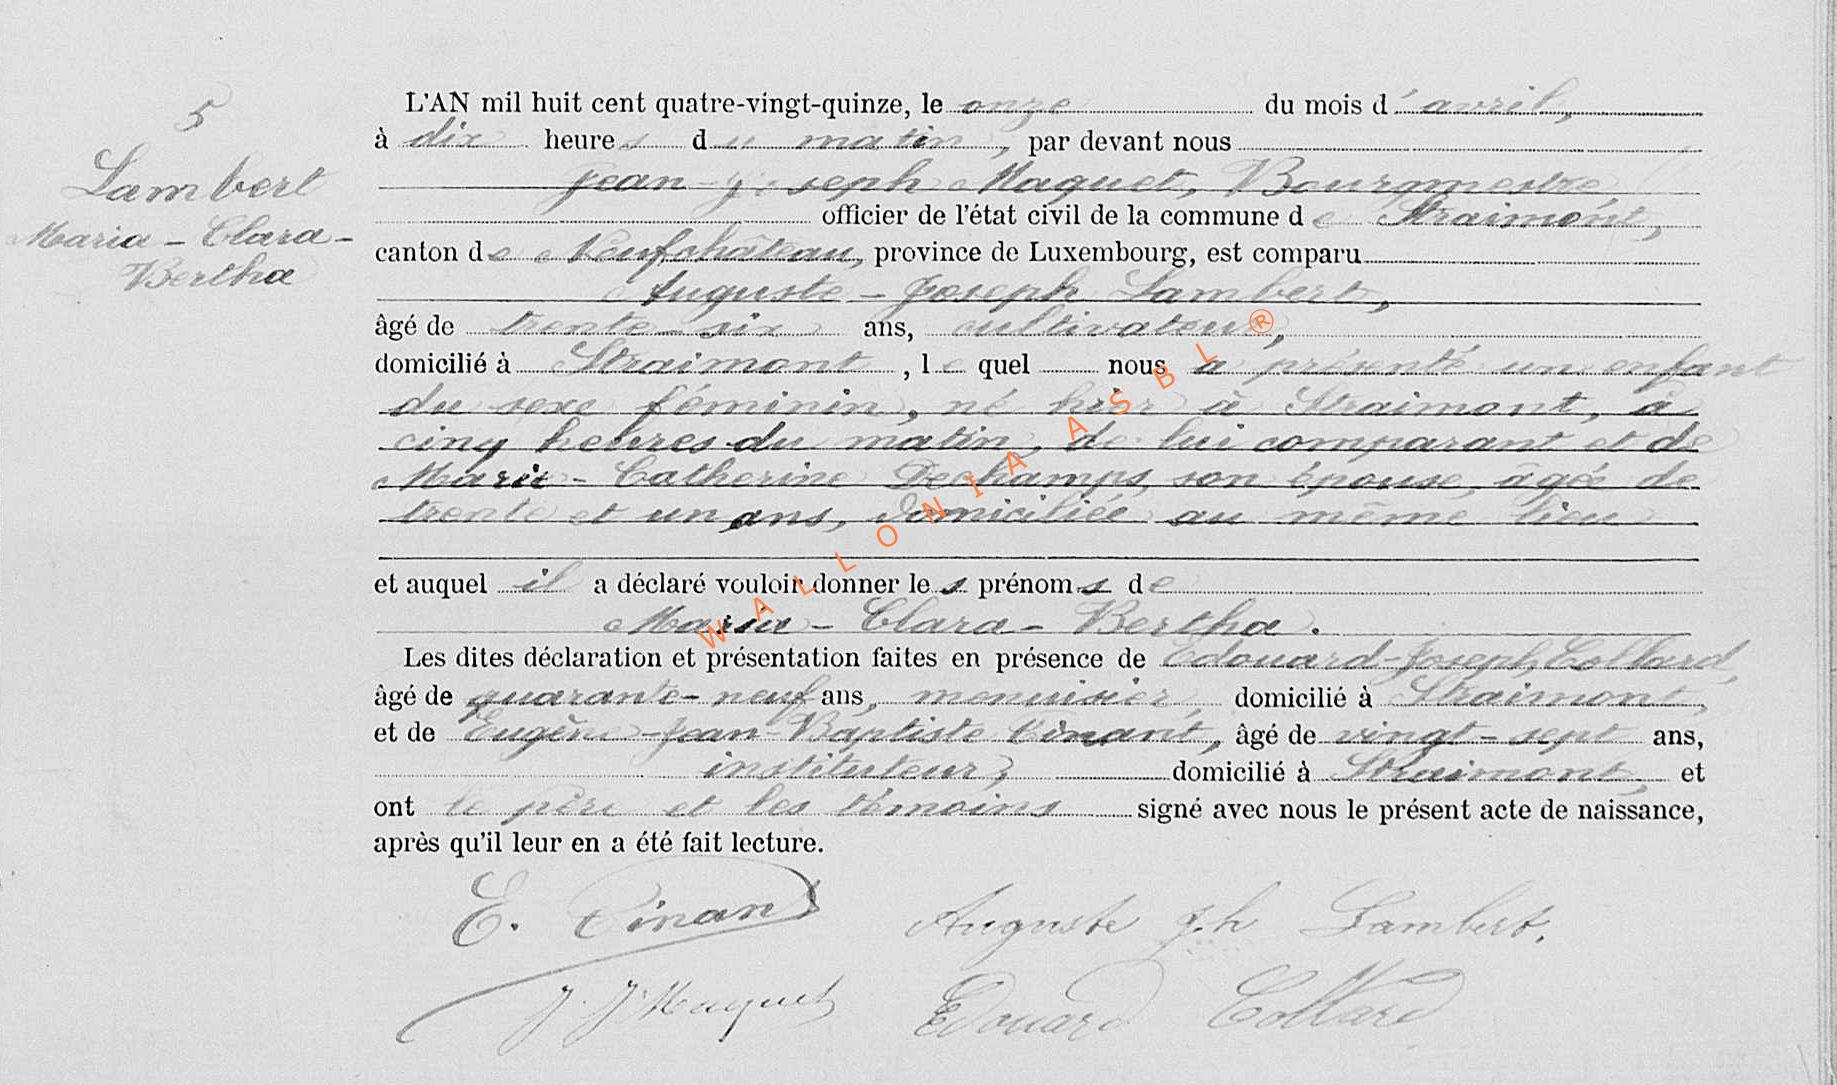 5
Lambert
Maria - Clara -
Bertha
L'AN mil huit cent quatre-vingt-quinze, le onze du mois d'avril,
à dix heures du matin, par devant nous
Jean-Joseph Maquet, Bourgmestre
officier de l'état civil de la commune de Straimont,
canton de Neufchâteau, province de Luxembourg, est comparu
Auguste - Joseph Lambert,
âgé de trente-six ans, cultivateur,
domicilié à Straimont, lequel nous a présenté un enfant
du sexe féminin, né hier à Straimont, à
cinq heures du matin, de lui comparant et de
Marie-Catherine Dechamps, son épouse, âgée de
trente et un ans, domiciliée au même lieu
et auquel il a déclaré vouloir donner les prénoms de
Maria - Clara - Bertha.
Les dites déclaration et présentation faites en présence de Edouard-Joseph Collard,
âgé de quarante-neuf ans, menuisier, domicilié à Straimont,
et de Eugène-Jean-Baptiste Pinant, âgé de vingt-sept ans,
instituteur, domicilié à Straimont, et
ont le père et les témoins signé avec nous le présent acte de naissance,
après qu'il leur en a été fait lecture.
E. Pinant Auguste Jh Lambert.
J. J. Maquet Edouard Collard
WALLONIA ASBL ®